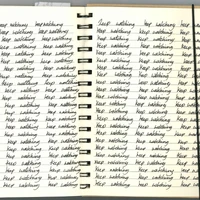 keep watching keep watching
keep watching keep watching
keep watching keep watching
keep watching keep watching
keep watching keep watching
keep watching keep watching
keep watching keep watching
keep watching keep watching
keep watching keep watching
keep watching keep watching
keep watching keep watching
keep watching keep watching
keep watching keep watching
keep watching keep watching
keep watching keep watching
keep watching keep watching
keep watching keep watching
keep watching keep watching
keep watching keep watching
keep watching keep watching keep
keep watching keep watching keep
keep watching keep watching keep
keep watching keep watching keep
keep watching keep watching keep
keep watching keep watching keep
keep watching keep watching keep
keep watching keep watching keep
keep watching keep watching keep
keep watching keep watching keep
keep watching keep watching keep
keep watching keep watching keep
keep watching keep watching keep
keep watching keep watching keep
keep watching keep watching keep
keep watching keep watching keep
keep watching keep watching keep
keep watching keep watching keep
keep watching keep watching keep